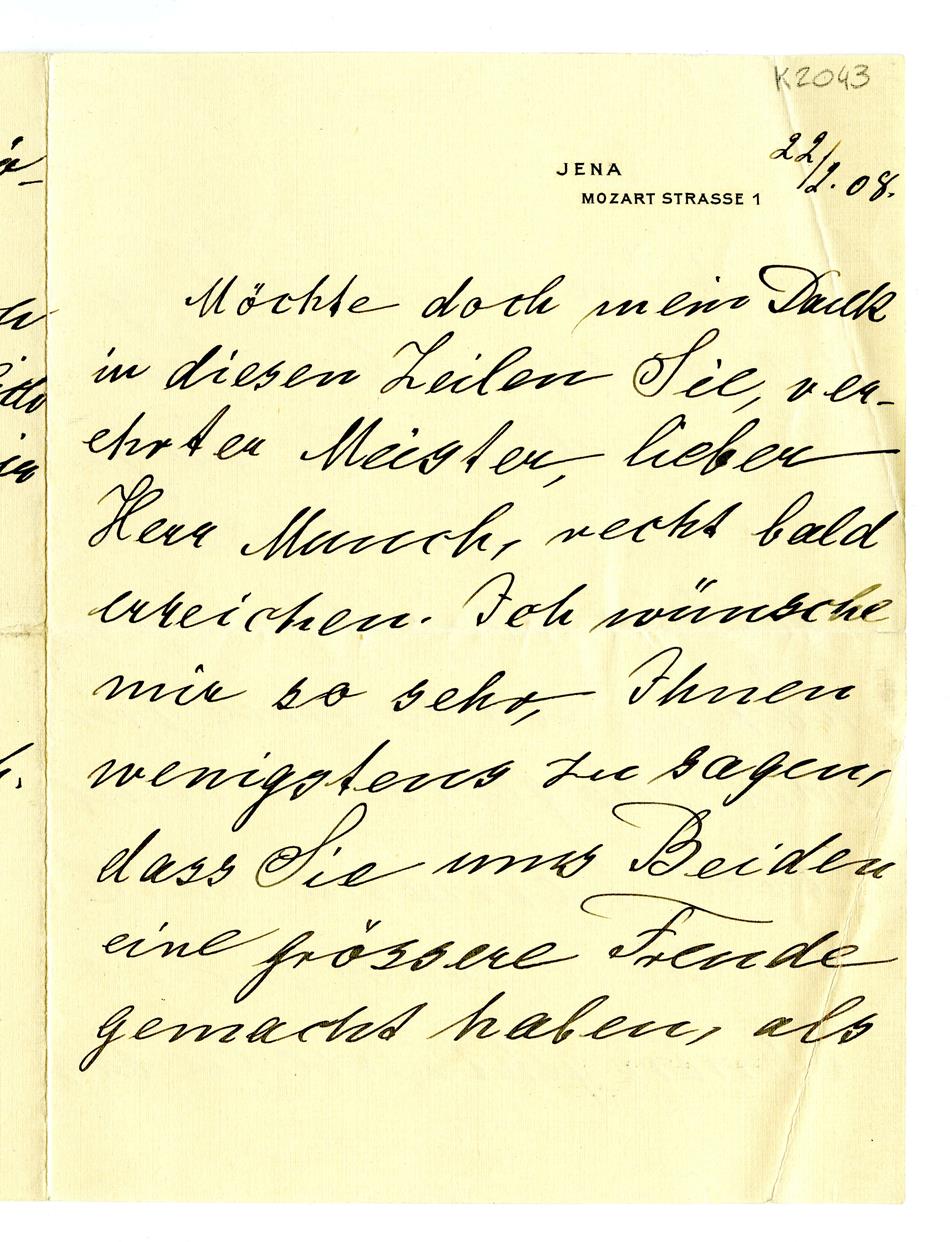 K2043
JENA
MOZART STRASSE 1
22/2. 08.
Möchte doch mein Dank
in diesen Zeilen Sie, ver-
ehrter Meister, lieber
Herr Munch, recht bald
erreichen. Ich wünsche
mir so sehr, Ihnen
wenigstens zu sagen,
dass Sie uns Beiden
eine grössere Freude
gemacht haben, als